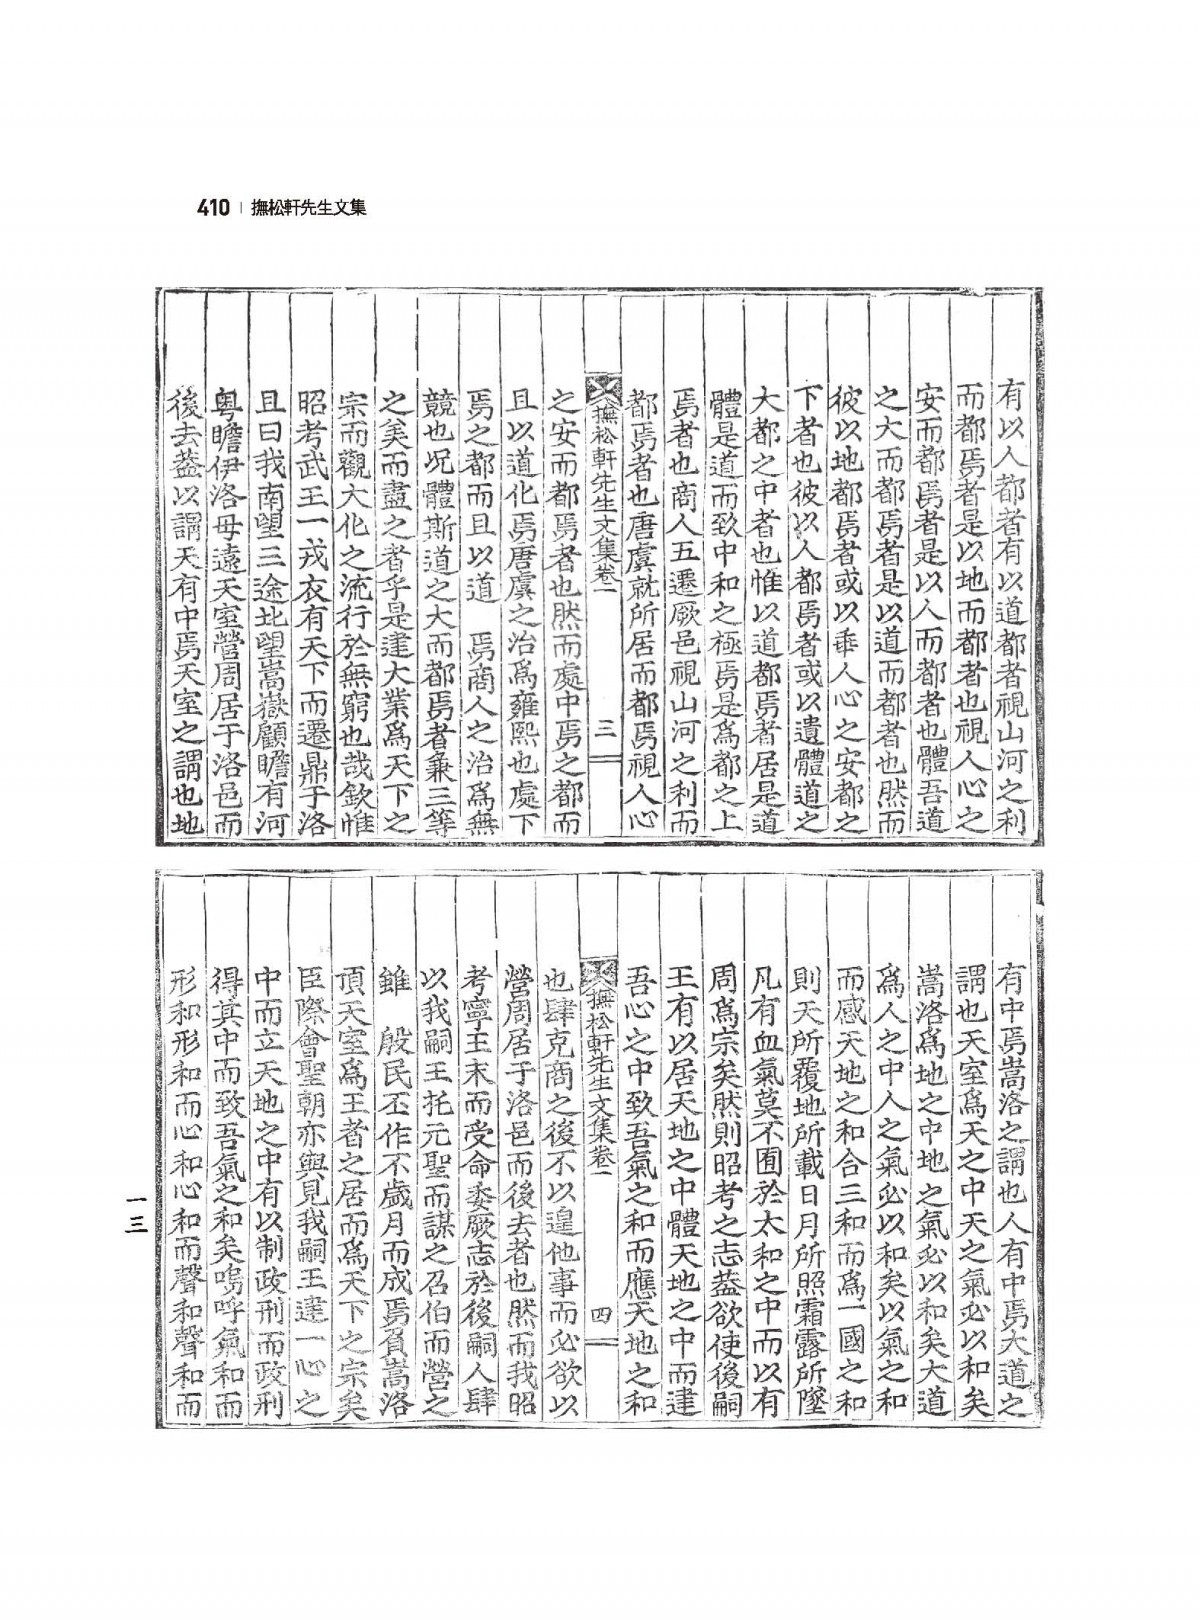 410 | 撫松軒先生文集
有以人都者有以道都者視山河之利
而都焉者是以地而都者也視人心之
安而都焉者是以人而都者也體吾道
之大而都焉者是以道而都者也然而
彼以地都焉者或以乖人心之安都之
下者也彼以人都焉者或以遺體道之
大都之中者也惟以道都焉者居是道
體是道而致中和之極焉是爲都之上
焉者也商人五遷厥邑視山河之利而
都焉者也唐虞就所居而都焉視人心
撫松軒先生文集卷一 三
之安而都焉者也然而處中焉之都而
且以道化焉唐虞之治爲雍熙也處下
焉之都而且以道 焉商人之治爲無
競也况體斯道之大而都焉者兼三等
之美而盡之者乎是建大業爲天下之
宗而觀大化之流行於無窮也哉欽惟
昭考武王一戎衣有天下而遷鼎于洛
且曰我南望三途北望嵩嶽顧瞻有河
粤瞻伊洛毋遠天室營周居于洛邑而
後去蓋以謂天有中焉天室之謂也地
有中焉嵩洛之謂也人有中焉大道之
謂也天室爲天之中天之氣必以和矣
嵩洛爲地之中地之氣必以和矣大道
爲人之中人之氣必以和矣以氣之和
而感天地之和合三和而爲一國之和
則天所覆地所載日月所照霜露所墜
凡有血氣莫不囿於太和之中而以有
周爲宗矣然則昭考之志蓋欲使後嗣
王有以居天地之中體天地之中而建
吾心之中致吾氣之和而應天地之和
撫松軒先生文集卷一 四
也肆克商之後不以遑他事而必欲以
營周居于洛邑而後去者也然而我昭
考寧王末而受命委厥志於後嗣人肆
以我嗣王托元聖而謀之召伯而營之
雖 殷民丕作不歲月而成焉負嵩洛
頂天室爲王者之居而爲天下之宗矣
臣際會聖朝亦與見我嗣王達一心之
中而立天地之中有以制政刑而政刑
得其中而致吾氣之和矣嗚呼氣和而
形和形和而心和心和而聲和聲和而
一三